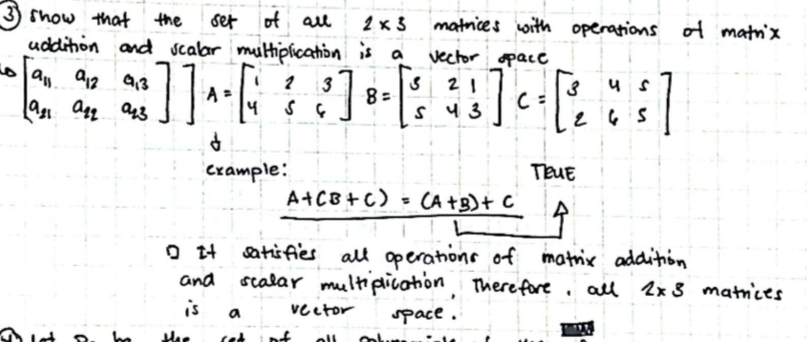 ③ Show that the set of all 2x3 matrices with operations of matrix
addition and scalar multiplication is a vector space
[a11 a12 a13] ] A = [1 2 3] B = [3 2 1] C = [3 4 5]
[a21 a22 a23] [4 5 6] [5 4 3] [2 6 5]
example: TRUE
A+(B+C) = (A+B)+C
It satisfies all operations of matrix addition
and scalar multiplication, Therefore, all 2x3 matrices
is a vector space.
④ Let be the set of all